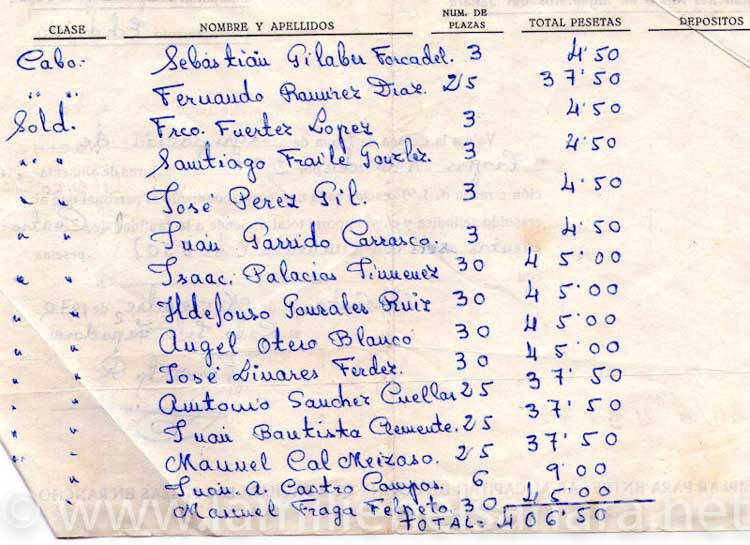 CLASE NOMBRE Y APELLIDOS NUM. DE PLAZAS TOTAL PESETAS DEPOSITOS
Cabo.- Sebastián Gilabér Forcadel. 3 4'50
" " Fernando Ramírez Díaz. 25 37'50
Sold. Frco. Fuertez Lopez 3 4'50
" " Santiago Fraile Gonzlez. 3 4'50
" " José Perez Gil. 3 4'50
" " Juan Garrido Carrasco. 3 4'50
" " Isaac. Palacios Jimenez 30 45'00
" " Ildefonso Gonzales Ruiz 30 45'00
" " Angel Otero Blanco 30 45'00
" " José Linares Ferdez. 30 45'00
" " Antonio Sanchez Cuellar 25 37'50
" " Juan Bautista Clemente. 25 37'50
" " Manuel Cal Meizoso. 25 37'50
" Juan A. Castro Campos. 6 9'00
Manuel Fraga Felpeto. 30 45'00
TOTAL= 406'50